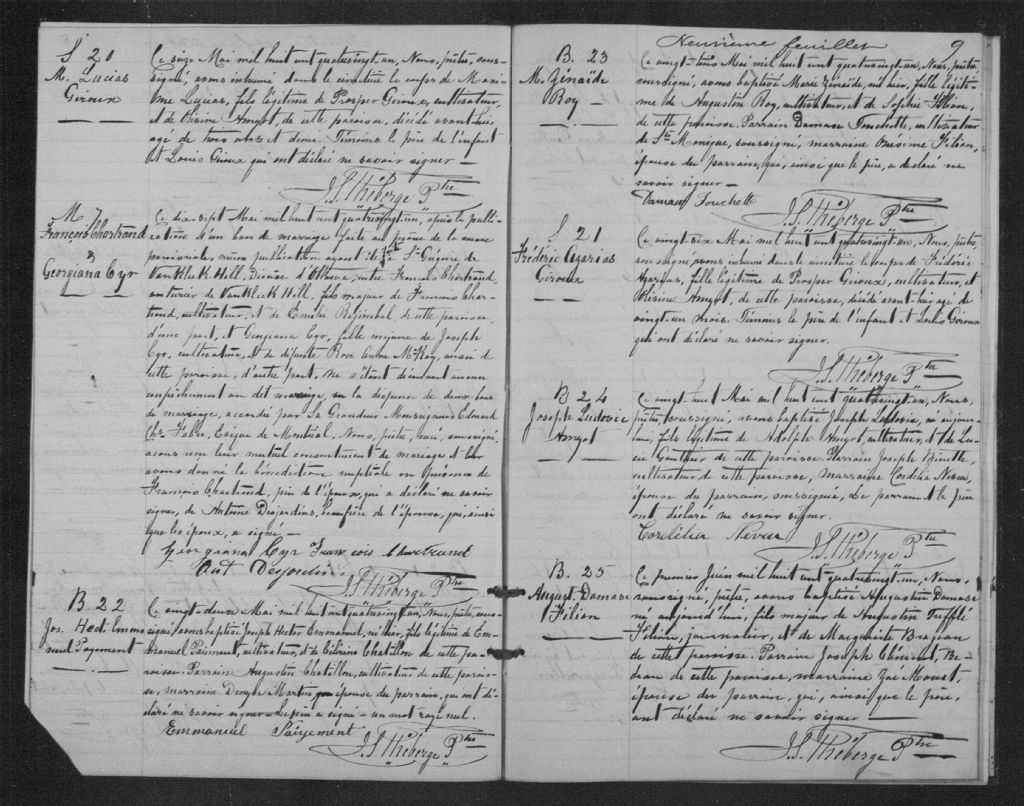 S 20
M. Lucias
Giroux
Ce seize Mai mil huit cent quatrevingt-un, Nous, prêtre, sous-
signé avons inhumé dans le cimetière le corps de Maxi-
me Lucias, fils légitime de Prosper Giroux, cultivateur,
et de Olésine Amyot, de cette paroisse, décédé avanthier
agé de trois ans et demi. Témoins le père de l'enfant
et Louis Giroux qui ont déclaré ne savoir signer
J. S. Théberge Ptre
M. 7
François Chartrand
&
Georgiana Cyr
Ce dix-sept Mai mil huit cent quatrevingt-un, après la publi-
cation d'un ban de mariage faite au prône de la messe
paroissiale, même publication ayant été faite à St Grégoire de
VanKluk Hill, Diocèse d'Ottawa, entre François Chartrand,
voiturier de VanKleek Hill, fils majeur de François Char-
trand, cultivateur, et de Emélie Régimbal de cette paroisse,
d'une part, et Georgiana Cyr, fille mineure de Joseph
Cyr, cultivateur, et de défunte Rose Anne McKay, aussi de
cette paroisse, d'autre part, ne s'étant découvert aucun
empêchement au dit mariage, vu la dispense de deux bans
de mariage, accordé par Sa Grandeur Monseigneur Edouard
Chs Fabre, Evêque de Montréal, Nous, prêtre, curé, soussigné,
avons reçu leur mutuel consentement de mariage et leur
avons donné la bénédiction nuptiale en présence de
François Chartrand, père de l'époux, qui a déclaré ne savoir
signer, de Antoine Desjardins, beaufrère de l'épouse, qui, ainsi
que les époux, a signé —
Giorgianna Cyr François Chartrand
Ant Desjardins
J. S. Théberge Ptre
B 22
Jos. Hect. Emma
nuel Payement
Ce vingt-deux Mai mil huit cent quatrevingt-un, Nous, prêtre, sous-
signé, avons baptisé Joseph Hector Emmanuel, né hier, fils légitime de Em-
manuel Paiment, cultivateur, et de Célérine Chatillon de cette pa-
roisse. Parrain Augustin Chatillon, cultivateur de cette parois-
se, marraine Martin épouse du parrain, qui ont dé-
claré ne savoir signer — Le père a signé — un mot rayé nul.
Emmanuel Paiyement
J. S. Théberge Ptre
Neuvième feuillet 9
B. 23
M. Zénaïde
Roy
Ce vingt-trois Mai mil huit cent quatrevingt-un, Nous, prêtre
soussigné, avons baptisé Marie Zénaïde, née hier, fille légiti-
me de Augustin Roy, cultivateur, et de Sophie Filion,
de cette paroisse. Parrain Damase Touchette, cultivateur
de Ste Monique, soussigné, marraine Onésime Filion,
épouse du parrain, qui, ainsi que le père, a déclaré ne
savoir signer —
Damase Touchette
J. S. Théberge Ptre
S 21
Frédéric Azarias
Giroux
Ce vingt-six Mai mil huit cent quatrevingt-un, Nous, prêtre,
soussigné, avons inhumé dans le cimetière le corps de Frédéric
Azarias, fille légitime de Prosper Giroux, cultivateur, et
Olésine Amyot, de cette paroisse, décédé avant-hier agé de
vingt-un mois. Témoins le père de l'enfant et Louis Giroux
qui ont déclaré ne savoir signer.
J. S. Théberge Ptre
B 24
Joseph Ludovic
Amyot
Ce vingt-huit Mai mil huit cent quatrevingt-un, Nous,
prêtre, soussigné, avons baptisé Joseph Ludovic, né aujour-
hui, fils légitime de Adolphe Amyot, cultivateur, et de Lu-
cie Gauthier de cette paroisse. Parrain Joseph Binette,
cultivateur de cette paroisse, marraine Cordélia Neveu,
épouse du parrain, soussignée, Le parrain et le père
ont déclaré ne savoir signer.
Cordélia Neveu
J. S. Théberge Ptre
B. 25
August. Damase
Filion
Ce premier Juin mil huit cent quatrevingt-un, Nous,
soussigné, prêtre, avons baptisé Augustin Damase
né aujourd'hui, fils majeur de Augustin Tufflé
Filion, journalier, et de Marguerite Brazeau
de cette paroisse. Parrain Joseph Clément, Be-
deau de cette paroisse, marraine Zoé Monet,
épouse du parrain, qui, ainsi que le père,
ont déclaré ne savoir signer
J. S. Théberge Ptre